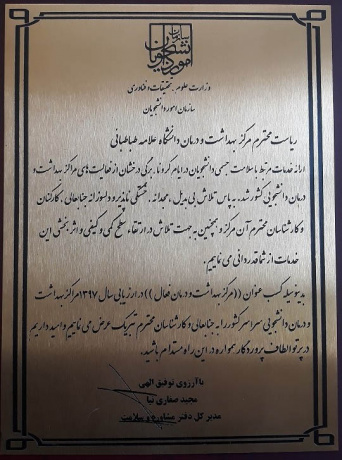 سازمان
امور دانشجویان
وزارت علوم، تحقیقات و فناوری
سازمان امور دانشجویان
ریاست محترم مرکز بهداشت و درمان دانشگاه علامه طباطبائی
ارائه خدمات مرتبط با سلامت جسمی دانشجویان در ایام کرونا، برگی درخشان از فعالیت های مراکز بهداشت و
درمان دانشجویی کشور شد. به پاس تلاش بی بدیل، مجدانه، خستگی ناپذیر و دلسوزانه جنابعالی، کارکنان
و کارشناسان محترم آن مرکز و همچنین به جهت تلاش در ارتقاء سطح کمی و کیفی و اثربخشی این
خدمات از شما قدردانی می نماییم.
بدینوسیله کسب عنوان ((مرکز بهداشت و درمان فعال)) در ارزیابی سال ۱۳۹۷ مراکز بهداشت
و درمان دانشجویی سراسر کشور را به جنابعالی و کارشناسان محترم تبریک عرض می نماییم و امید داریم
در پرتو الطاف پروردگار همواره در این راه مستدام باشید.
با آرزوی توفیق الهی
مجید صفاری نیا
مدیر کل دفتر مشاوره و سلامت